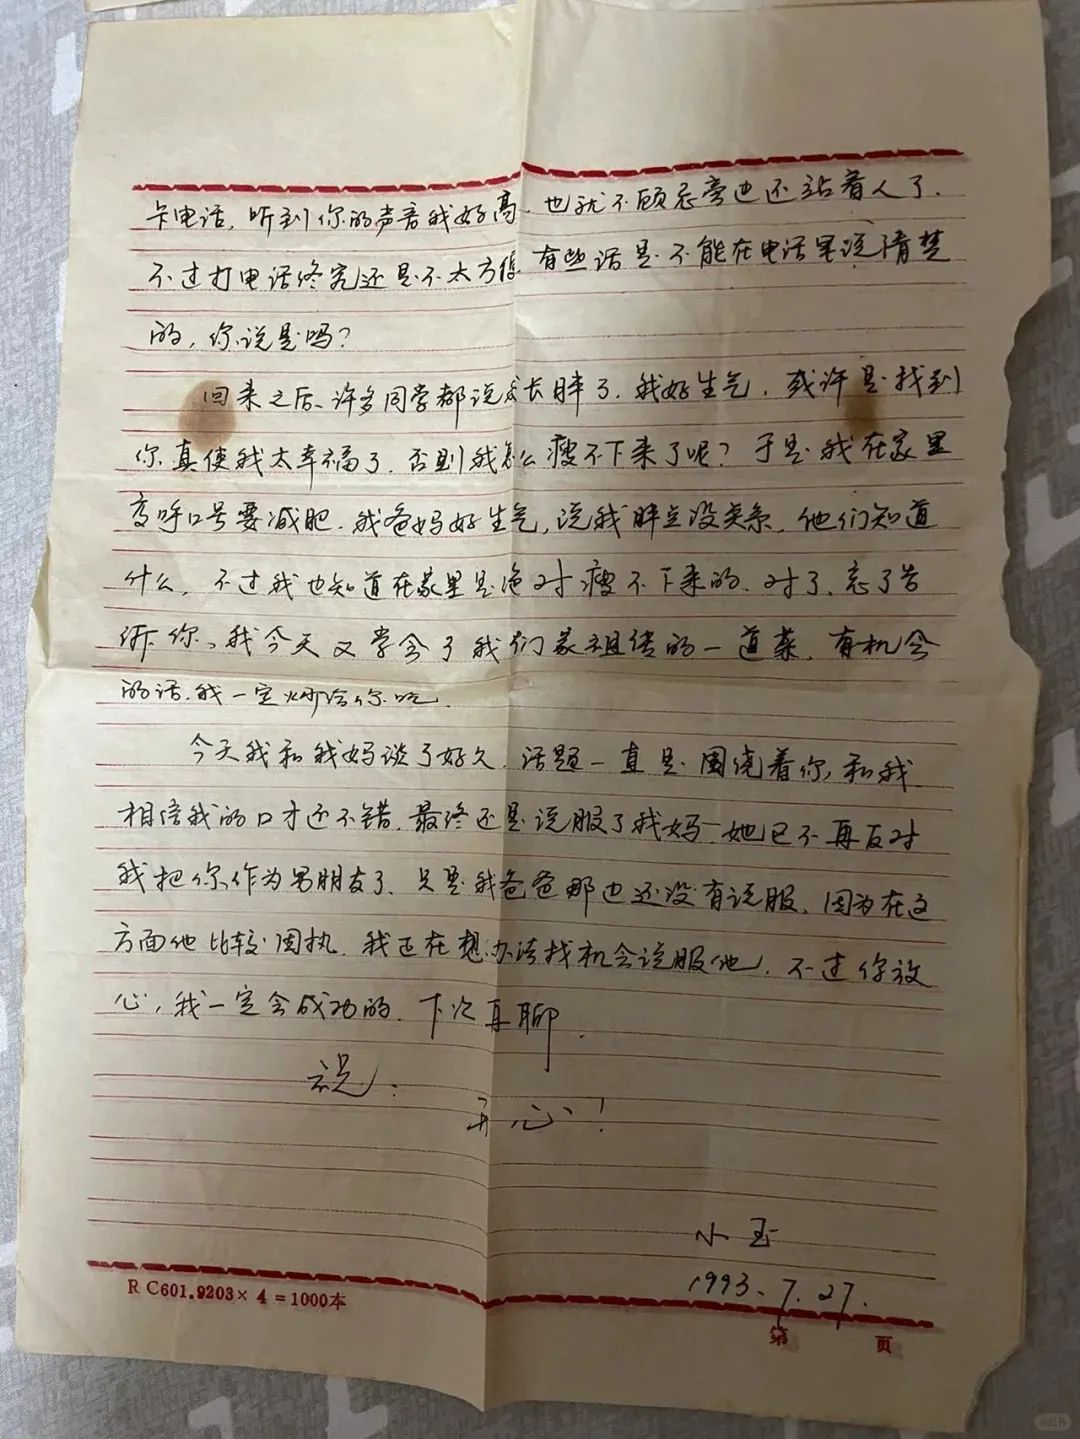 卡电话，听到你的声音我好高，也就不顾忌旁边还站着人了．
不过打电话终究还是不太方便 有些话是不能在电话里说清楚
的，你说是吗？
回来之后、许多同学都说我长胖了．我好生气，或许是找到
你真使我太幸福了．否则我怎么瘦不下来了呢？于是我在家里
高呼口号要减肥．我爸妈好生气，说我胖点没关系．他们知道
什么，不过我也知道在家里是绝对瘦不下来的．对了、忘了告
诉你、我今天又学会了我们家祖传的一道菜．有机会
的话．我一定炒给你吃．
今天我和我妈谈了好久．话题一直是围绕着你，和我．
相信我的口才还不错．最终还是说服了我妈．她已不再反对
我把你作为男朋友了、只是我爸爸那边还没有说服．因为在这
方面他比较固执．我正在想办法找机会说服他．不过你放
心，我一定会成功的．下次再聊．
祝：
开心！
小玉
1993.7.27.
R C601.9203×4=1000本
第 页
小红书